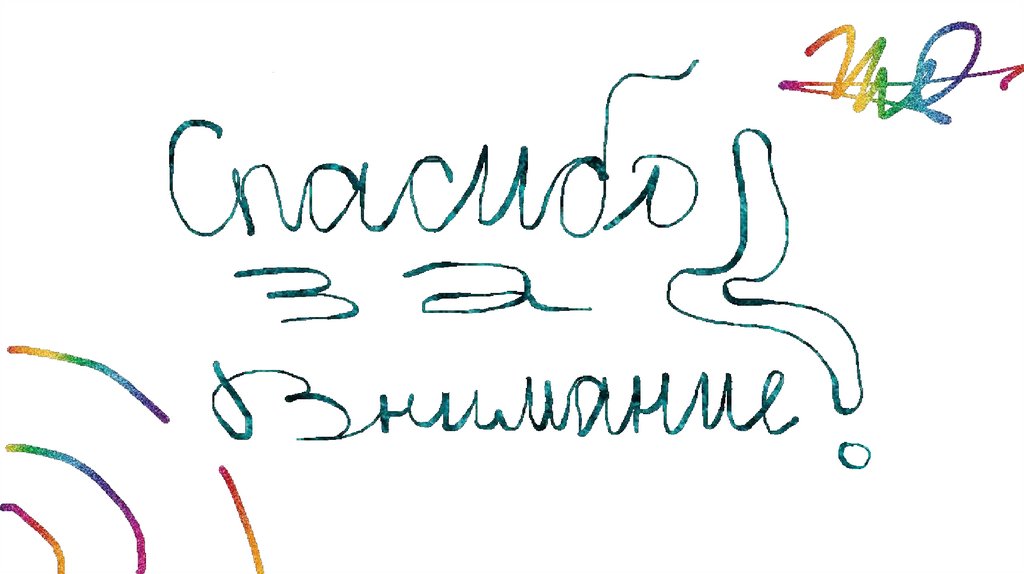 Спасибо
за
Внимание!